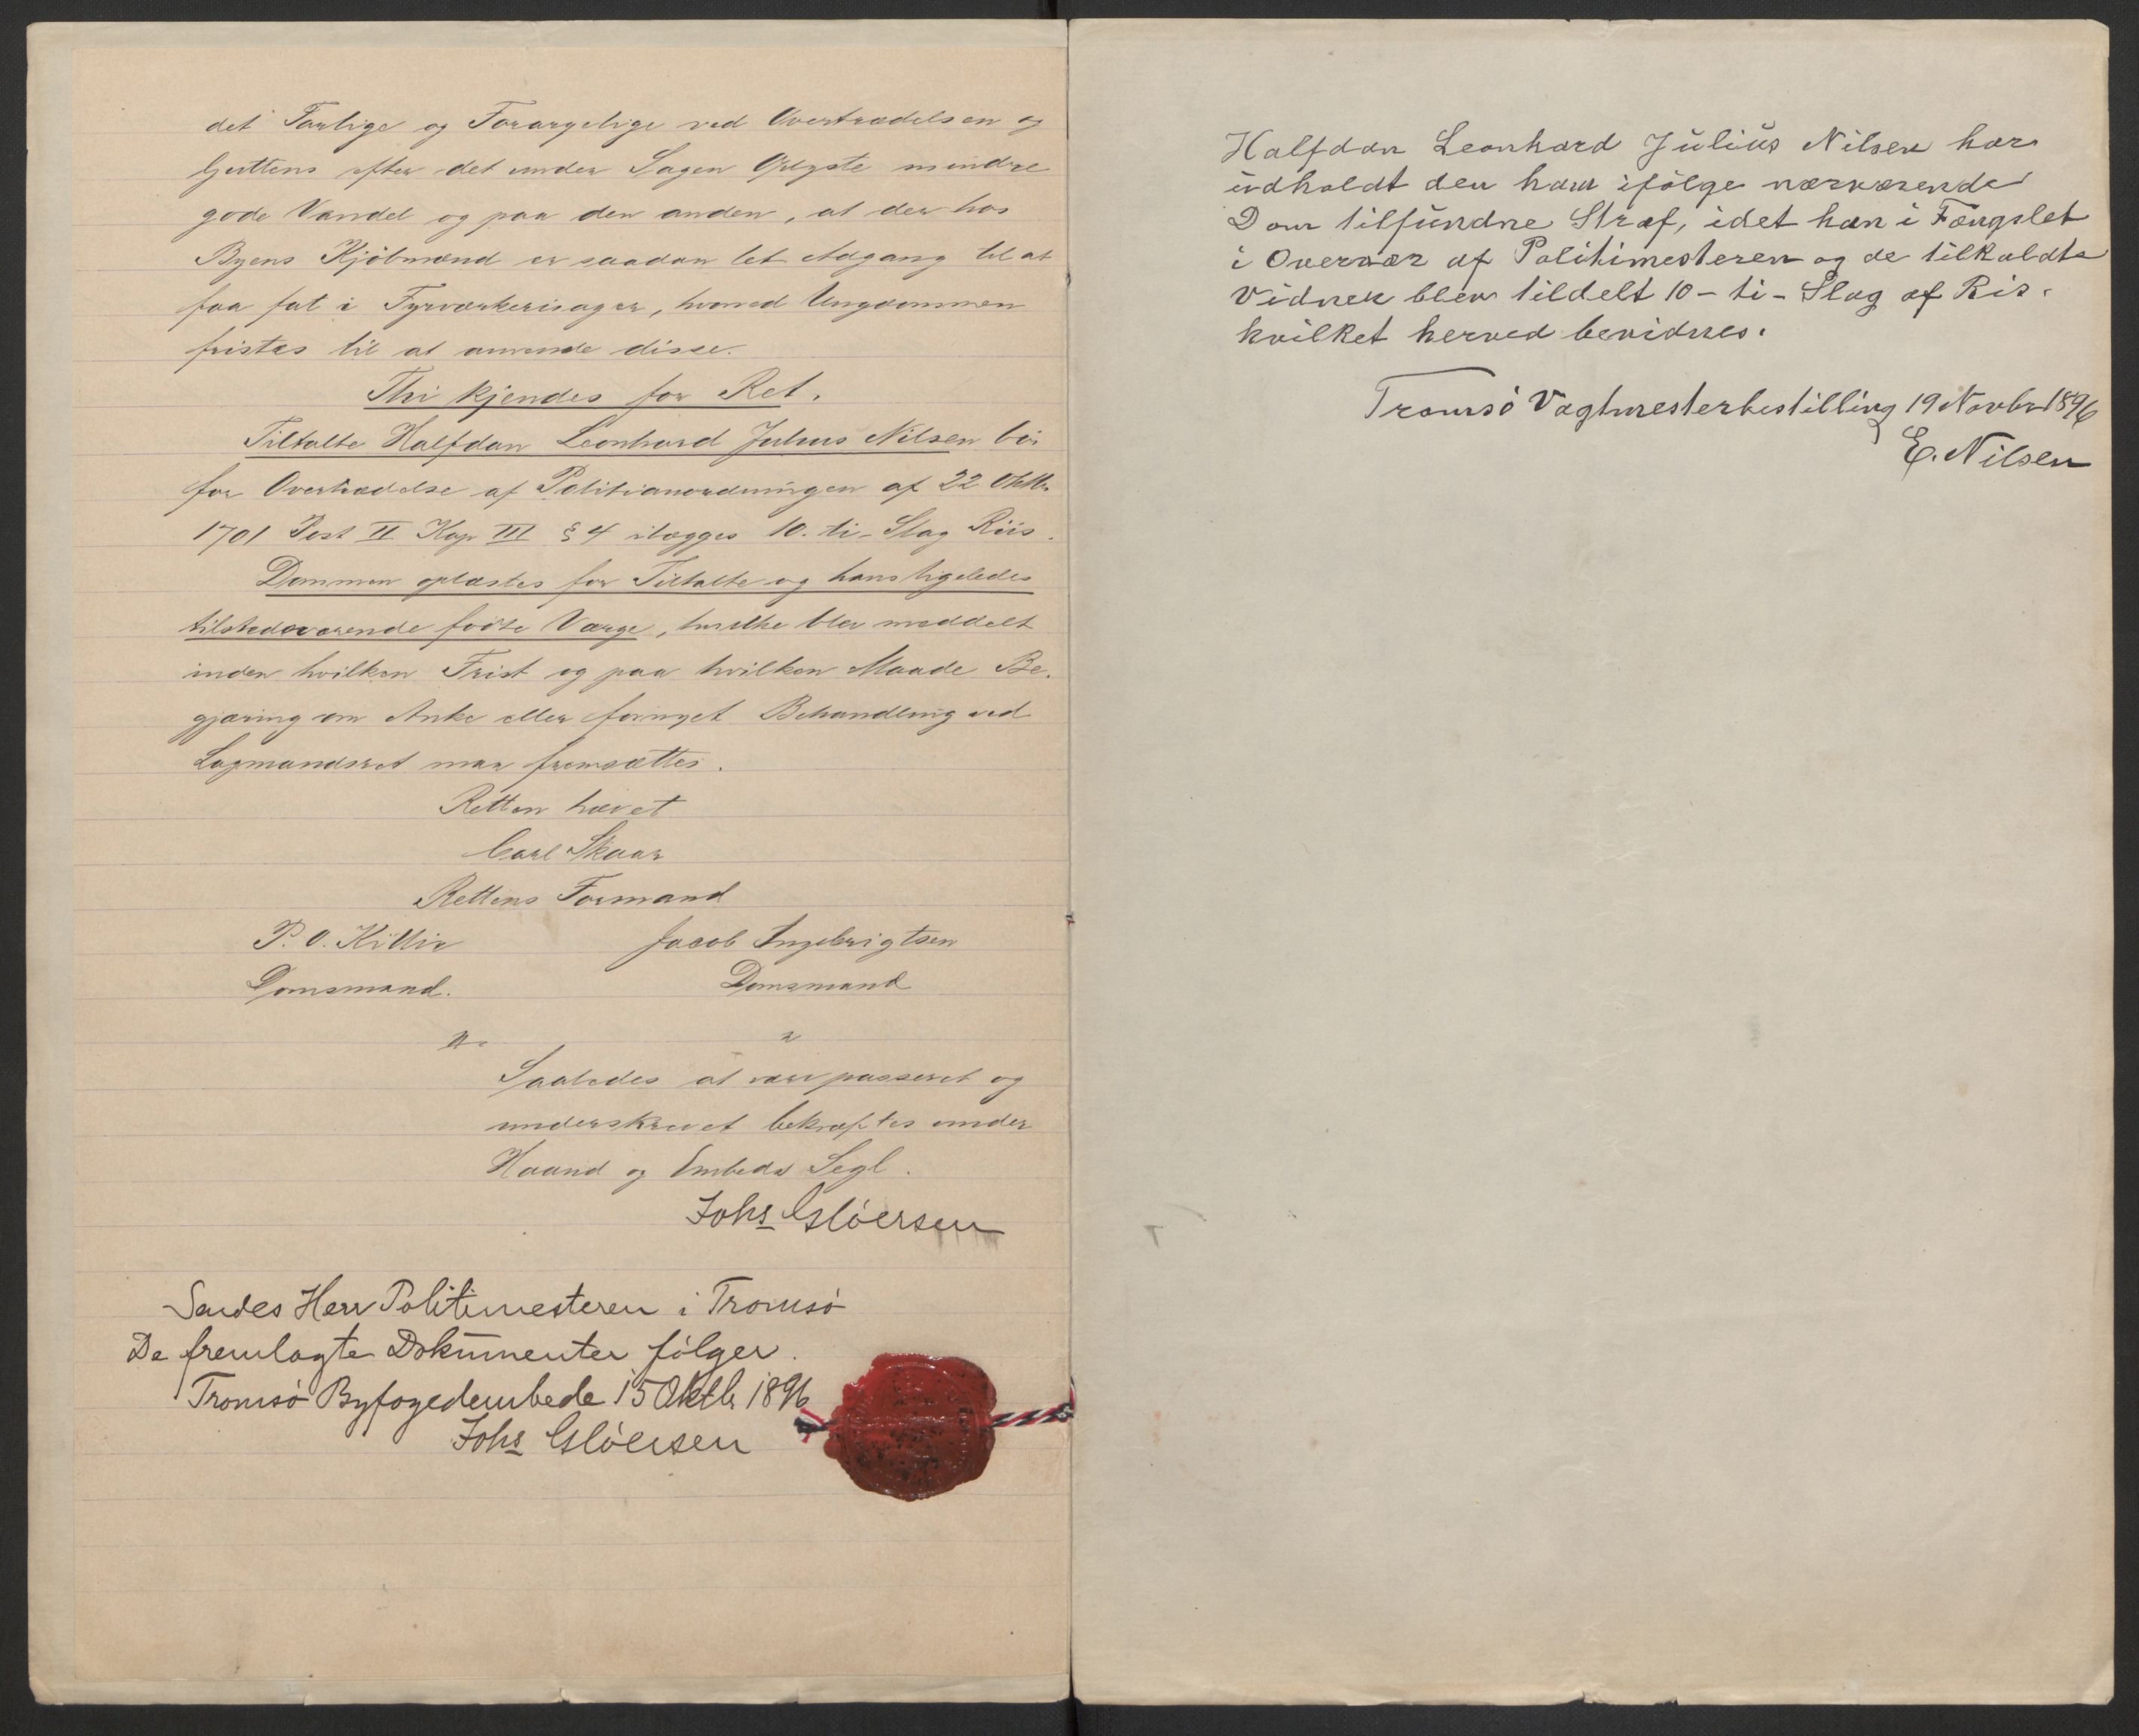 det Farlige og Forargelige ved Overtrædelsen og
Guttens efter det under Sagen Oplyste mindre
gode Vandel og paa den anden, at der hos
Byens Kjøbmænd er saadan let Adgang til at
faa fat i Fyrværkerisager, hvorved Ungdommen
fristes til at anvende disse.
Thi kjendes for Ret.
Tiltalte Halfdan Leonhard Julius Nilsen bør
for Overtrædelse af Politianordningen af 22 Oktbr
1701 Post II Kap III § 4 ilægges 10. ti - Slag Riis.
Dommen oplæstes for Tiltalte og hans ligeledes
tilstedeværende fødte Værge, hvilke blev meddelt
inden hvilken Frist og paa hvilken Maade Be-
gjæring om Anke eller fornyet Behandling ved
Lagmandsret maa fremsættes.
Retten hævet
Carl Skaar
Rettens Formand
P. O. Jacob Ingebrigtsen
Domsmand. Domsmand
Saaledes at være passeret og
underskrevet bekræftes under
Haand og Embeds Segl.
Johs Gløersen
Sendes Herr Politimesteren i Tromsø
De fremlagte Dokumenter følger.
Tromsø Byfogedembede 15 Oktbr 1896
Johs Gløersen
Halfdan Leonhard Julius Nilsen har
udholdt den ham ifølge nærværende
Dom tilfundne Straf, idet han i Fængslet
i Overvær af Politimesteren og de tilkaldte
Vidner blev tildelt 10 - ti - Slag af Ris.
hvilket herved bevidnes.
Tromsø Vagtmesterbestilling 19 Novbr 1896
E. Nilsen